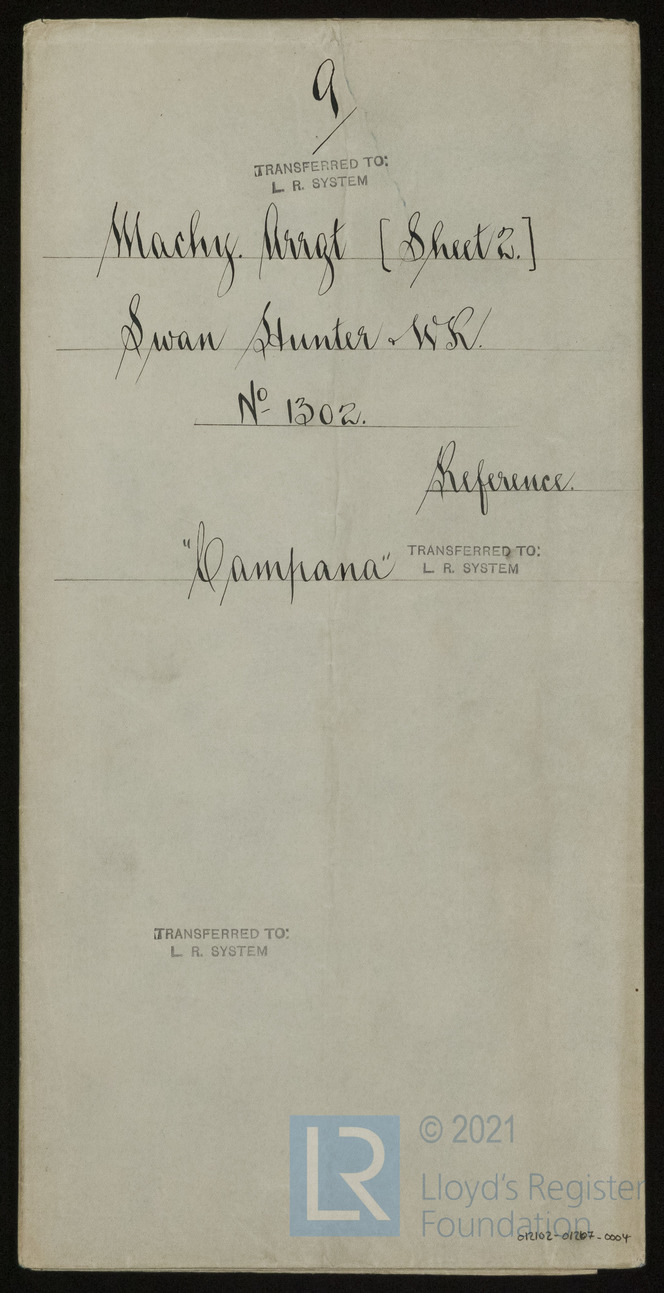 9/
TRANSFERRED TO:
L. R. SYSTEM
Machy. Arrgt [Sheet 2.]
Swan Hunter & WR.
No 1302.
Reference.
"Campana"
TRANSFERRED TO:
L. R. SYSTEM
TRANSFERRED TO:
L. R. SYSTEM
LR
© 2021
Lloyd's Register
Foundation
012102-01207-0004